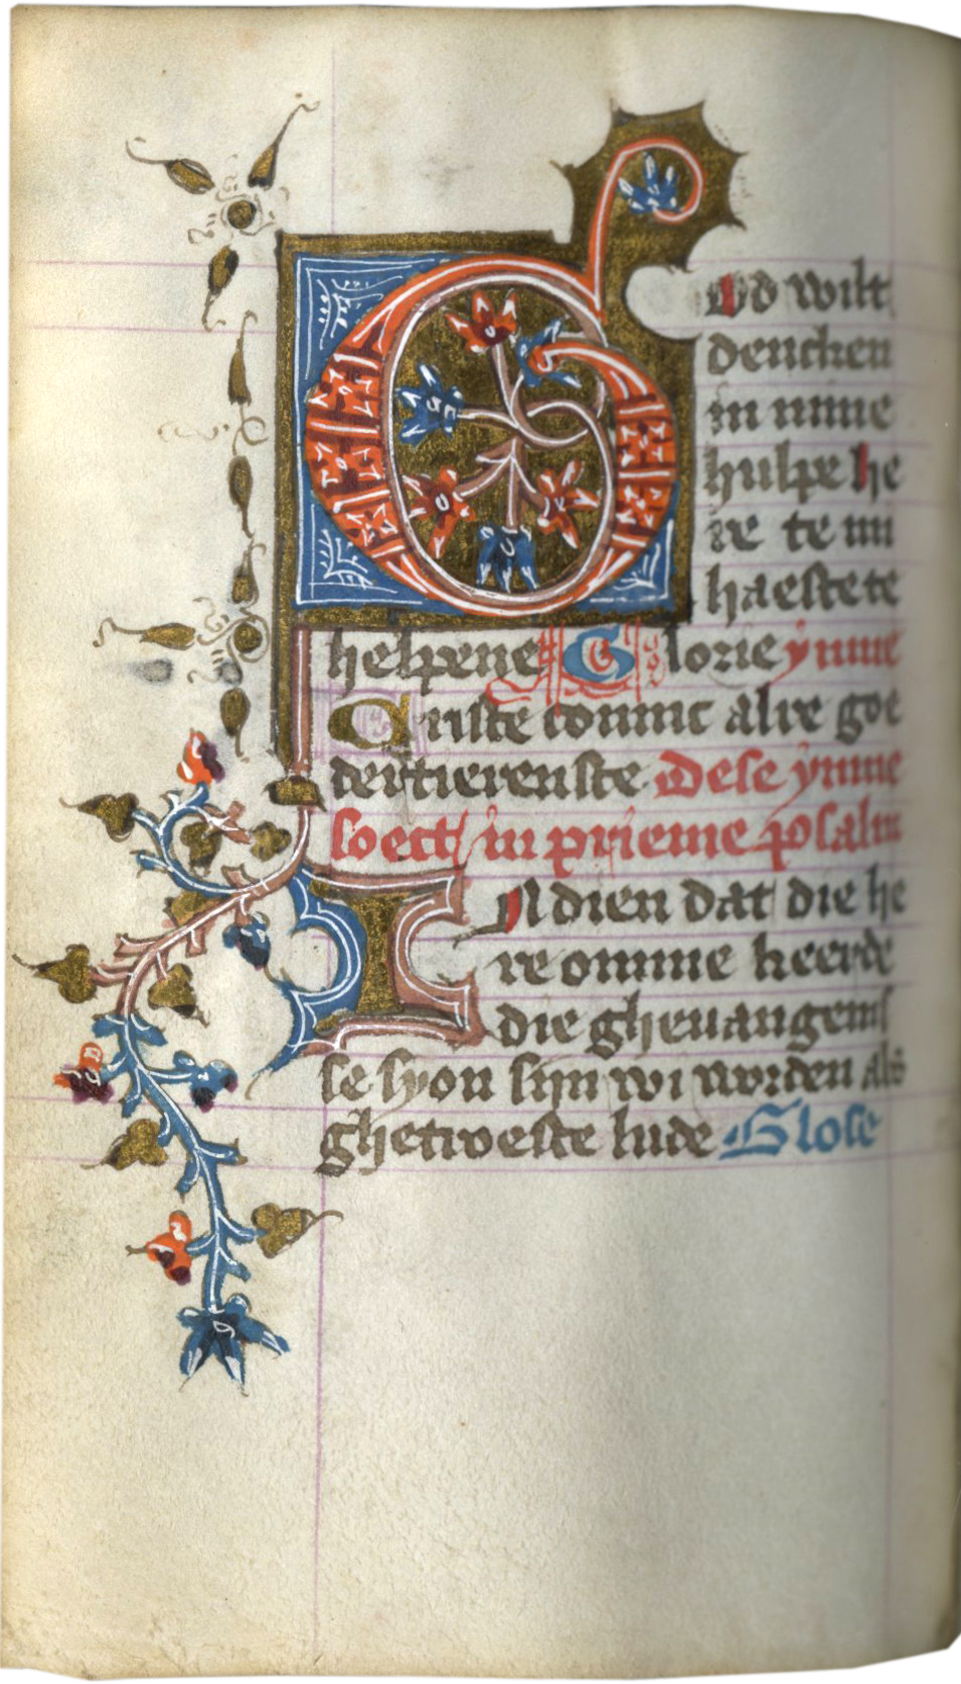 God wilt
dencken
in mine
hulpe he
re te mi
haeste te
helpene Glorie ymne
Criste comme alre goe
dertierenste Dese ymne
soect in prieme psalm
INdien dat die he
re omme keerde
die ghevangenis
se syon sijn wi worden als
ghetroeste lude Glose